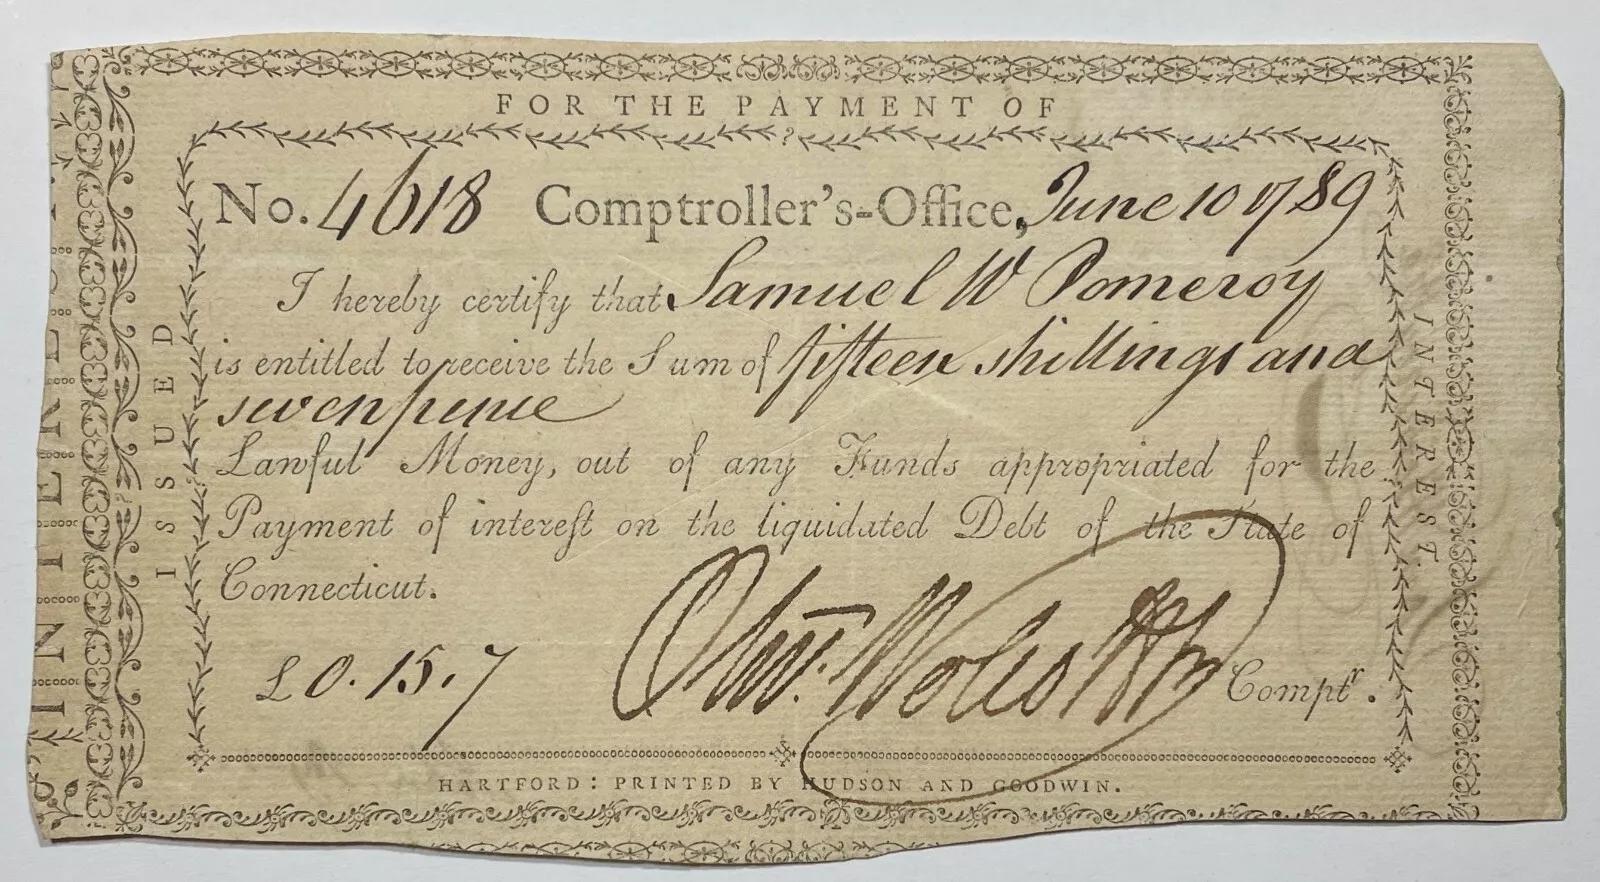 FOR THE PAYMENT OF
No. 4618 Comptroller's-Office, June 10 1789
I hereby certify that Samuel W Pomeroy
is entitled to receive the Sum of fifteen shillings and
sevenpence
Lawful Money, out of any Funds appropriated for the
Payment of intereſt on the liquidated Debt of the State of
Connecticut.
£0.15.7 Olivr. Wolcott Jr Comptr.
HARTFORD: PRINTED BY HUDSON AND GOODWIN.
ISSUED
INTEREST.
INTEREST